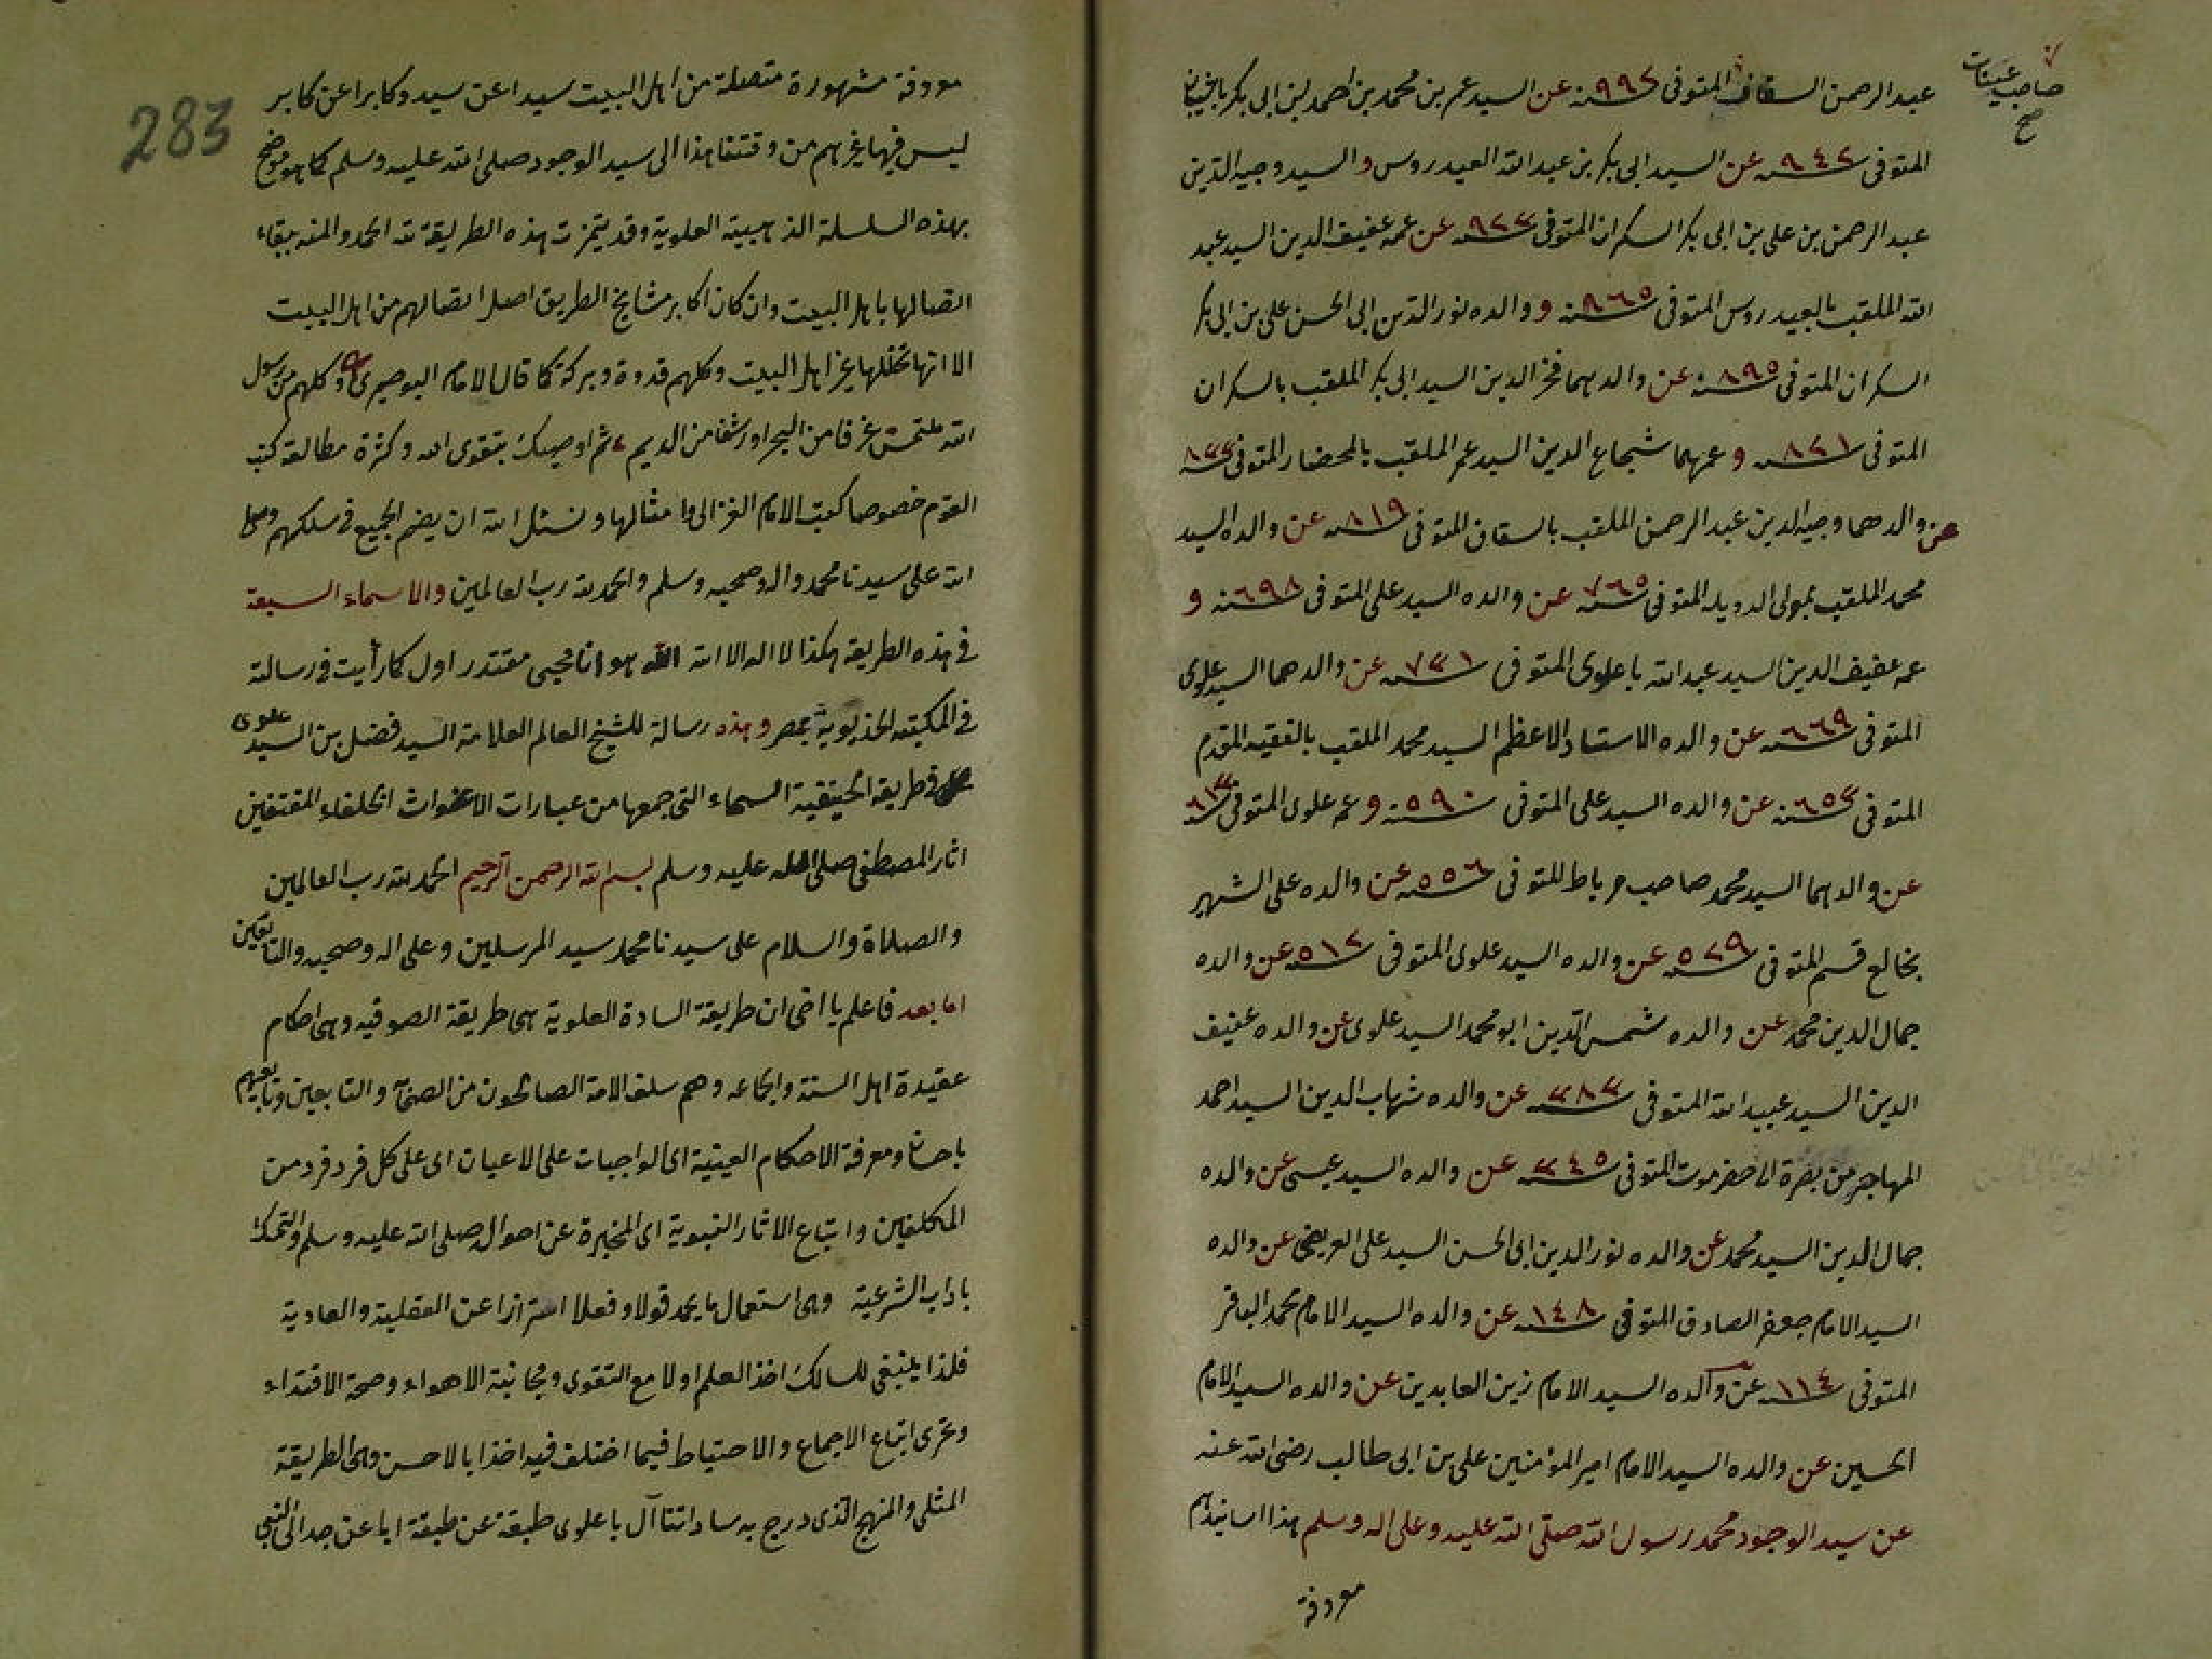 صاحب عينات
صح
عبد الرحمن السقاف المتوفى سنه ٩٩٢ عن السيد عمر بن محمد بن احمد بن ابى بكر باشيبان
المتوفى سنه ٩٤٢ عن السيد ابى بكر بن عبد الله العيدروس و السيد وجيه الدين
عبد الرحمن بن على بن ابى بكر السكران المتوفى سنه ٩٢٣ عن عمه عفيف الدين السيد عبد
الله الملقب بالعيدروس المتوفى سنه ٨٦٥ و والده نور الدين ابى الحسن على بن ابى بكر
السكران المتوفى سنه ٨٩٥ عن والدهما فخر الدين السيد ابى بكر الملقب بالسكران
المتوفى سنه ٨٢١ و عمهما شجاع الدين السيد عمر الملقب بالمحضار المتوفى سنه ٨٣٣
عن والدهما وجيه الدين عبد الرحمن الملقب بالسقاف المتوفى سنه ٨١٩ عن والده السيد
محمد الملقب بمولى الدويله المتوفى سنه ٧٦٥ عن والده السيد على المتوفى سنه ٦٩٨ و
عمه عفيف الدين السيد عبد الله باعلوى المتوفى سنه ٧٣١ عن والدهما السيد علوى
المتوفى سنه ٦٦٩ عن والده الاستاد الاعظم السيد محمد الملقب بالفقيه المقدم
المتوفى سنه ٦٥٣ عن والده السيد على المتوفى سنه ٥٩٠ و عم علوى المتوفى سنه ٦١٣
عن والدهما السيد محمد صاحب مرباط المتوفى سنه ٥٥٦ عن والده على الشهير
بخالع قسم المتوفى سنه ٥٢٩ عن والده السيد علوى المتوفى سنه ٥١٢ عن والده
جمال الدين محمد عن والده شمس الدين ابو محمد السيد علوى عن والده عفيف
الدين السيد عبيد الله المتوفى سنه ٣٨٣ عن والده شهاب الدين السيد احمد
المهاجر من بصرة الى حضرموت المتوفى سنه ٣٤٥ عن والده السيد عيسى عن والده
جمال الدين السيد محمد عن والده نور الدين ابى الحسن السيد على العريضى عن والده
السيد الامام جعفر الصادق المتوفى سنه ١٤٨ عن والده السيد الامام محمد الباقر
المتوفى سنه ١١٤ عن والده السيد الامام زين العابدين عن والده السيد الامام
الحسين عن والده السيد الامام امير المؤمنين على بن ابى طالب رضى الله عنه
عن سيد الوجود محمد رسول الله صلى الله عليه وعلى اله وسلم هذا اسانيدهم
معروفة
283
معروفة مشهورة متصلة من اهل البيت سيدا عن سيد وكابرا عن كابر
ليس فيها غيرهم من وقتنا هذا الى سيد الوجود صلى الله عليه وسلم كما هو موضح
بهذه السلسلة الذهبية العلوية وقد يتميزت هذه الطريقة لله الحمد والمنه ببقاء
اتصالها باهل البيت وان كان اكابر مشايخ الطريق اصل اتصالهم من اهل البيت
الا انها تخللها غير اهل البيت وكلهم قدوة وبركة كما قال الامام البوصيرى وكلهم من رسول
الله ملتمس غرفا من البحر او رشفا من الديم ثم اوصيك بتقوى الله وكثرة مطالعة كتب
القوم خصوصا كتب الامام الغزالى وامثالها ونسئل الله ان يضم الجميع فى سلكهم وصلى
الله على سيدنا محمد واله وصحبه وسلم والحمد لله رب العالمين والاسماء السبعة
فى هذه الطريقة هكذا لا اله الا الله الله هو انا محيى مقتدر اول كما رأيت فى رسالة
فى المكتبة الخديوية بمصر وهذه رسالة للشيخ العالم العلامة السيد فضل بن السيد علوى
فى طريقة الحنيفية السمحاء التى جمعها من عبارات الاغواث الخلفاء المقتفين
اثار المصطفى صلى الله عليه وسلم بسم الله الرحمن الرحيم الحمد لله رب العالمين
والصلاة والسلام على سيدنا محمد سيد المرسلين وعلى اله وصحبه والتابعين
اما بعد فاعلم يا اخى ان طريقة السادة العلوية هى طريقة الصوفيه وهى احكام
عقيدة اهل السنة والجماعه وهم سلف الامة الصالحون من الصحابة والتابعين وتابعيهم
باحسان ومعرفة الاحكام العينية اى الواجبات على الاعيان اى على كل فرد فرد من
المكلفين واتباع الاثار النبوية اى المخبرة عن احوال صلى الله عليه وسلم والتمسك
باداب الشرعية وهى استعمال ما يحمد قولا وفعلا احترازا عن العقلية والعادية
فلذا ينبغى للسالك اخذ العلم اولا مع التقوى ومجانبة الاهواء وصحة الاقتداء
وتحرى اتباع الاجماع والاحتياط فيما اختلف فيه اخذا بالاحسن وهى الطريقة
المثلى والمنهج الذى درج به ساداتنا آل باعلوى طبقة عن طبقة ابا عن جد الى النبى